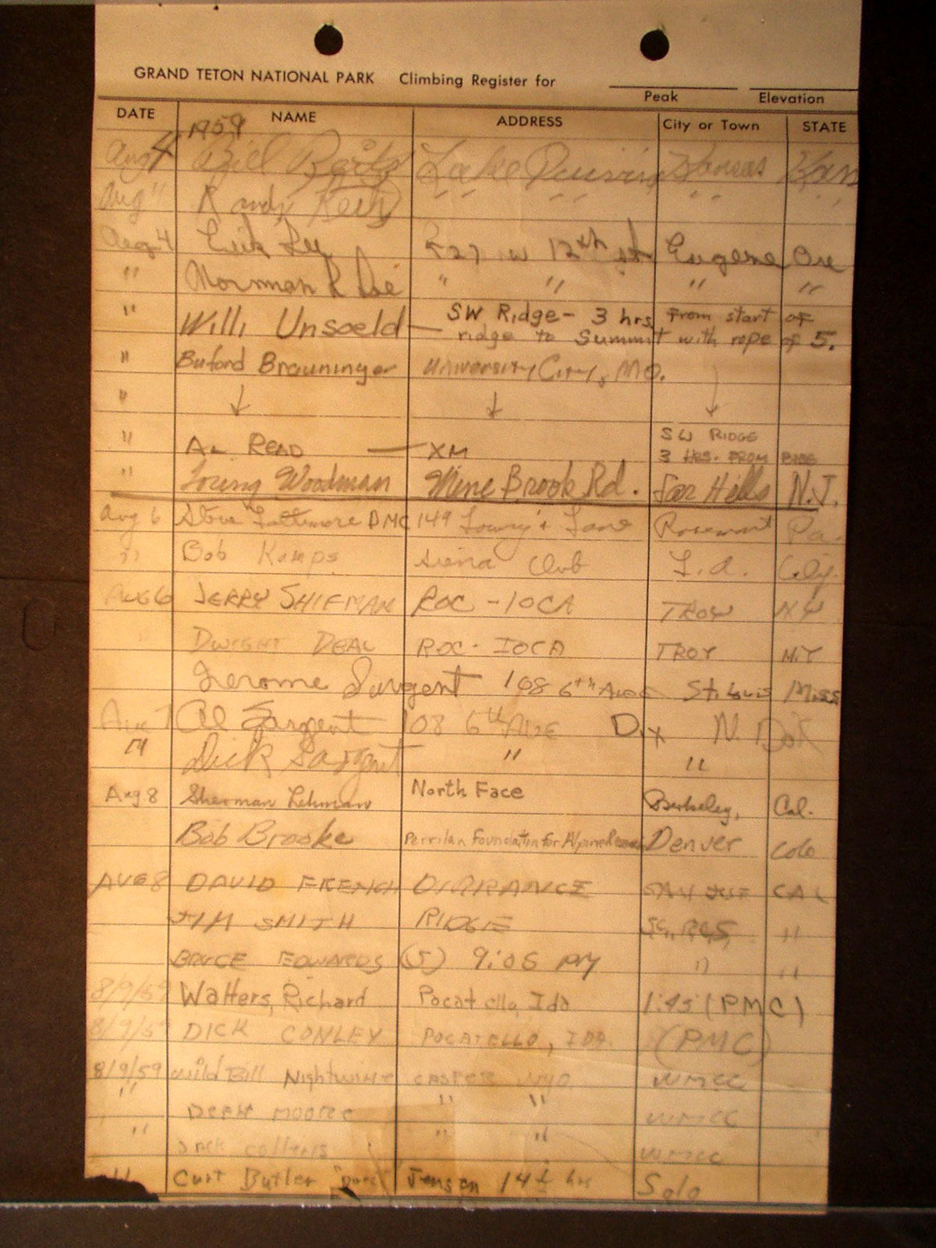 GRAND TETON NATIONAL PARK Climbing Register for
Peak Elevation
DATE NAME ADDRESS City or Town STATE
1959
Aug 4 Bill Lake Kansas Kan
Aug " Randy " " " "
Aug 4 Lee 227 W 12th st Eugene Ore
" Norman R Lee " " " "
" Willi Unsoeld — SW Ridge - 3 hrs from start of
ridge to Summit with rope of 5.
" Buford Brauninger University City, MO.
" ↓ ↓ ↓
SW RIDGE
" AL READ — XM 3 HRS. FROM BASE
" Loring Woodman Mine Brook Rd. Far Hills N.J.
Aug 6 Steve Lattimore DMC 149 Lowry's Lane Rosemont Pa.
" Bob Kamps Sierra Club L.A.
Aug 6 JERRY SHIFMAN ROC - IOCA TROY NY
DWIGHT DEAL ROC - IOCA TROY N.Y
Jerome Sargent 108 6th Ave St. Louis Miss
Aug 7 Al Sargent 108 6th Ave Dix N. Dak
" Dick Sargent " "
Aug 8 Sherman Lehman North Face Berkeley, Cal.
Bob Brooke Foundation for Denver Colo
AUG 8 DAVID FRENCH DURRANCE SAN JOSE CAL
JIM SMITH RIDGE "
BRUCE EDWARDS (5) 9:05 PM " "
8/9/59 Walters, Richard Pocatello, Ida 1:45 (PMC)
8/9/59 DICK CONLEY POCATELLO, IDA. (PMC)
8/9/59 Wild Bill Nightwine CASPER WYO WMCC
" DEAN MOORE " " WMCC
" Jack Collins " " WMCC
" Curt Butler Jensen 14½ hrs Solo